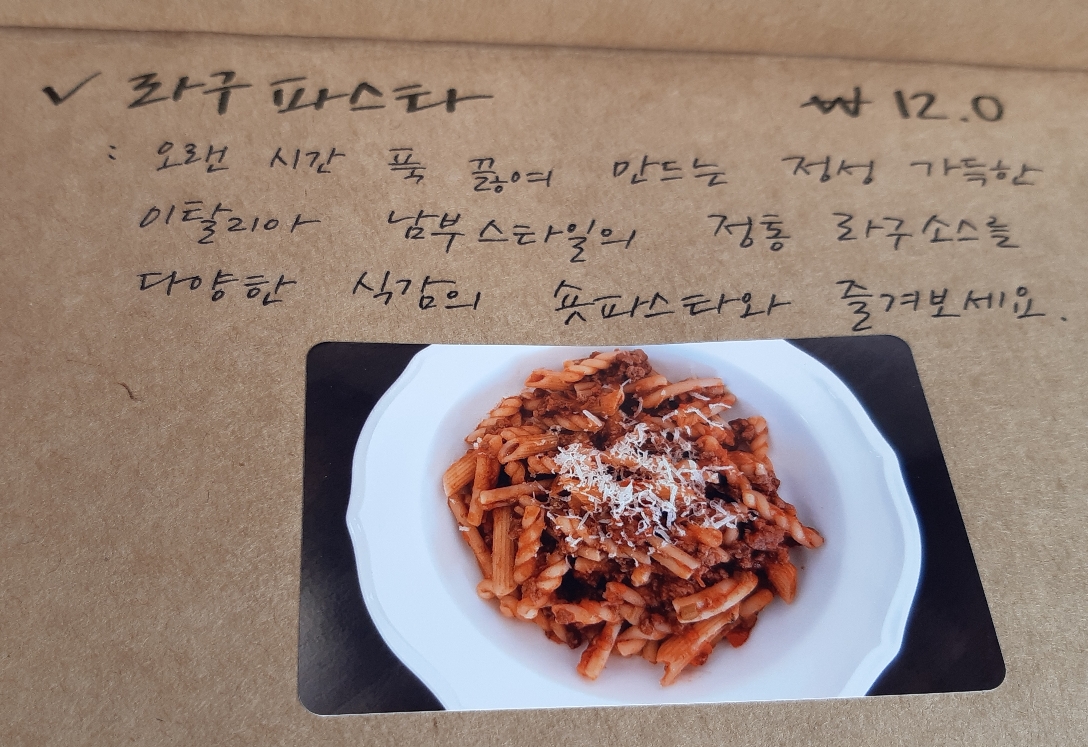 ✓ 라구 파스타 ₩ 12.0
: 오랜 시간 푹 끓여 만드는 정성 가득한
이탈리아 남부스타일의 정통 라구소스를
다양한 식감의 숏파스타와 즐겨보세요.